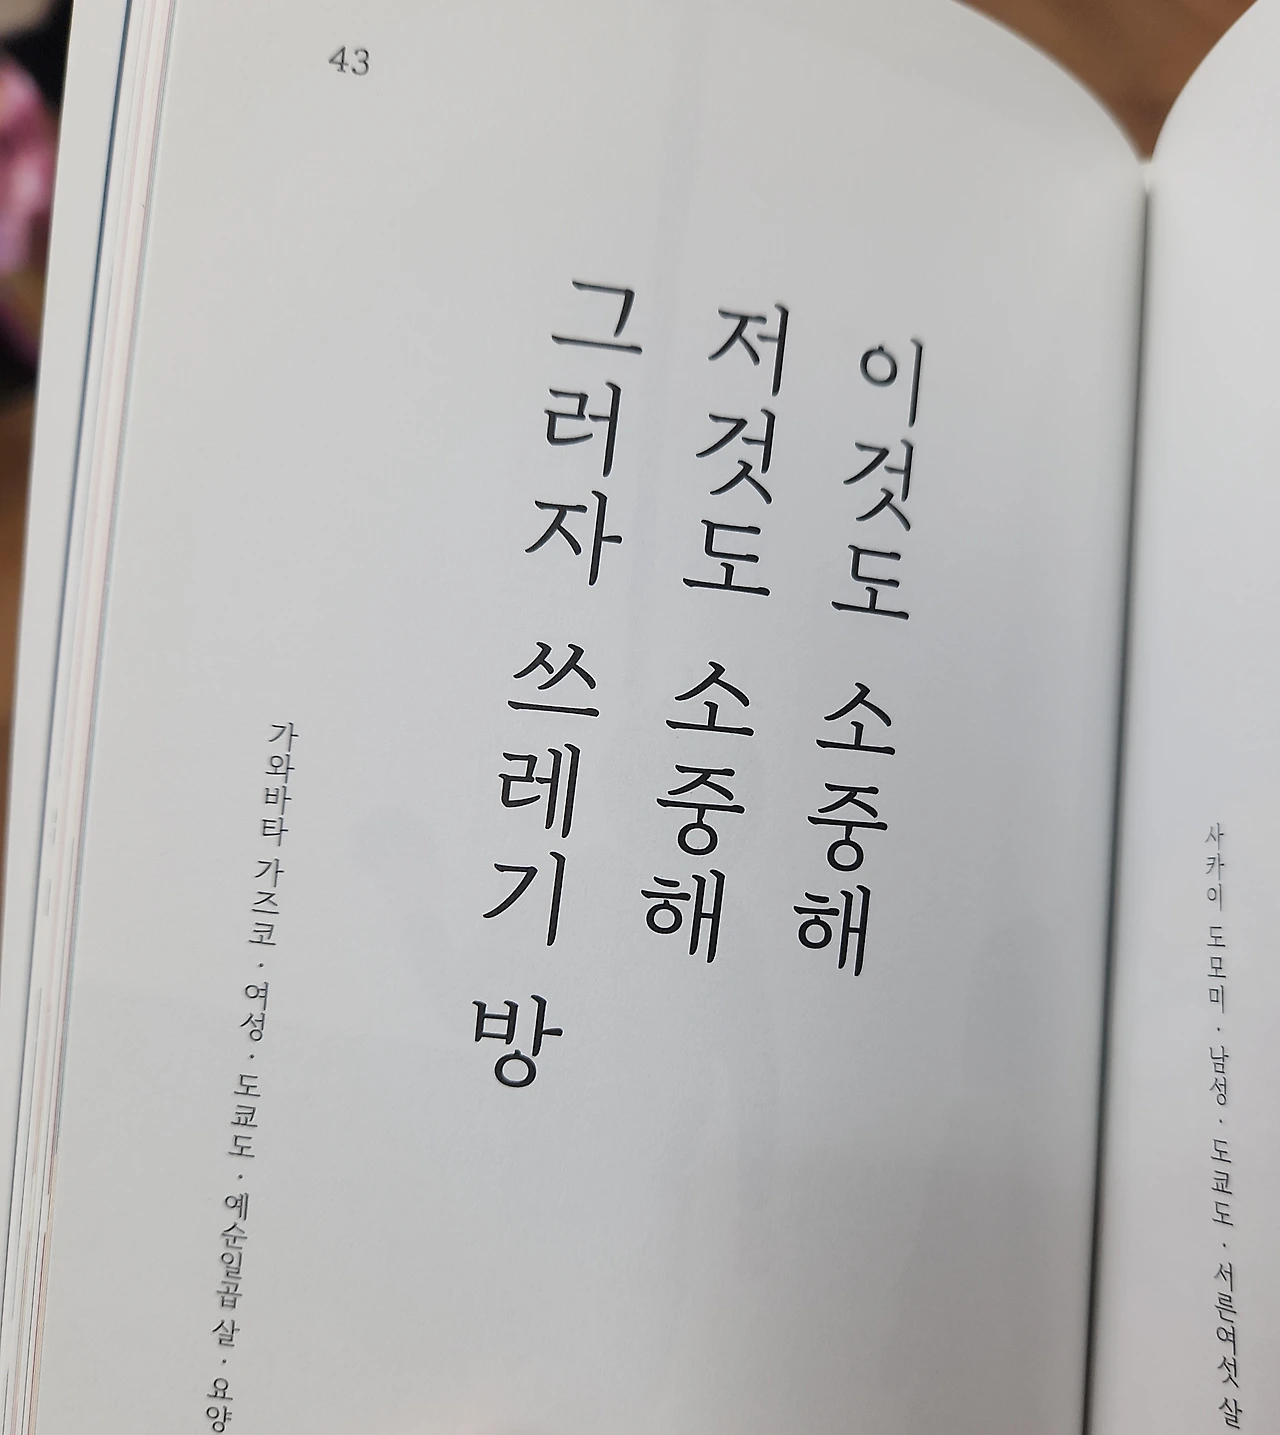 43
이것도 소중해
저것도 소중해
그러자 쓰레기 방
가와바타 가즈코 · 여성 · 도쿄도 · 예순일곱 살 · 요양
사카이 도모미 · 남성 · 도쿄도 · 서른여섯 살